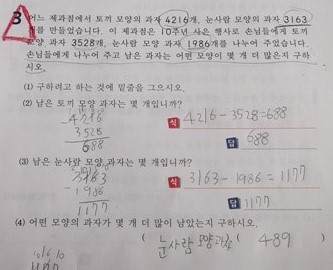 3 어느 제과점에서 토끼 모양의 과자 4216개, 눈사람 모양의 과자 3163
개를 만들었습니다. 이 제과점은 10주년 사은 행사로 손님들에게 토끼
모양 과자 3528개, 눈사람 모양 과자 1986개를 나누어 주었습니다.
손님들에게 나누어 주고 남은 과자는 어떤 모양이 몇 개 더 많은지 구하
시오.
(1) 구하려고 하는 것에 밑줄을 그으시오.
(2) 남은 토끼 모양 과자는 몇 개입니까?
4216
- 3528
688
식 4216-3528=688
답 688
(3) 남은 눈사람 모양 과자는 몇 개입니까?
3163
- 1986
1177
식 3163-1986=1177
답 1177
(4) 어떤 모양의 과자가 몇 개 더 많이 남았는지 구하시오.
( 눈사람 모양 과자 ( 489 )
10 16 10